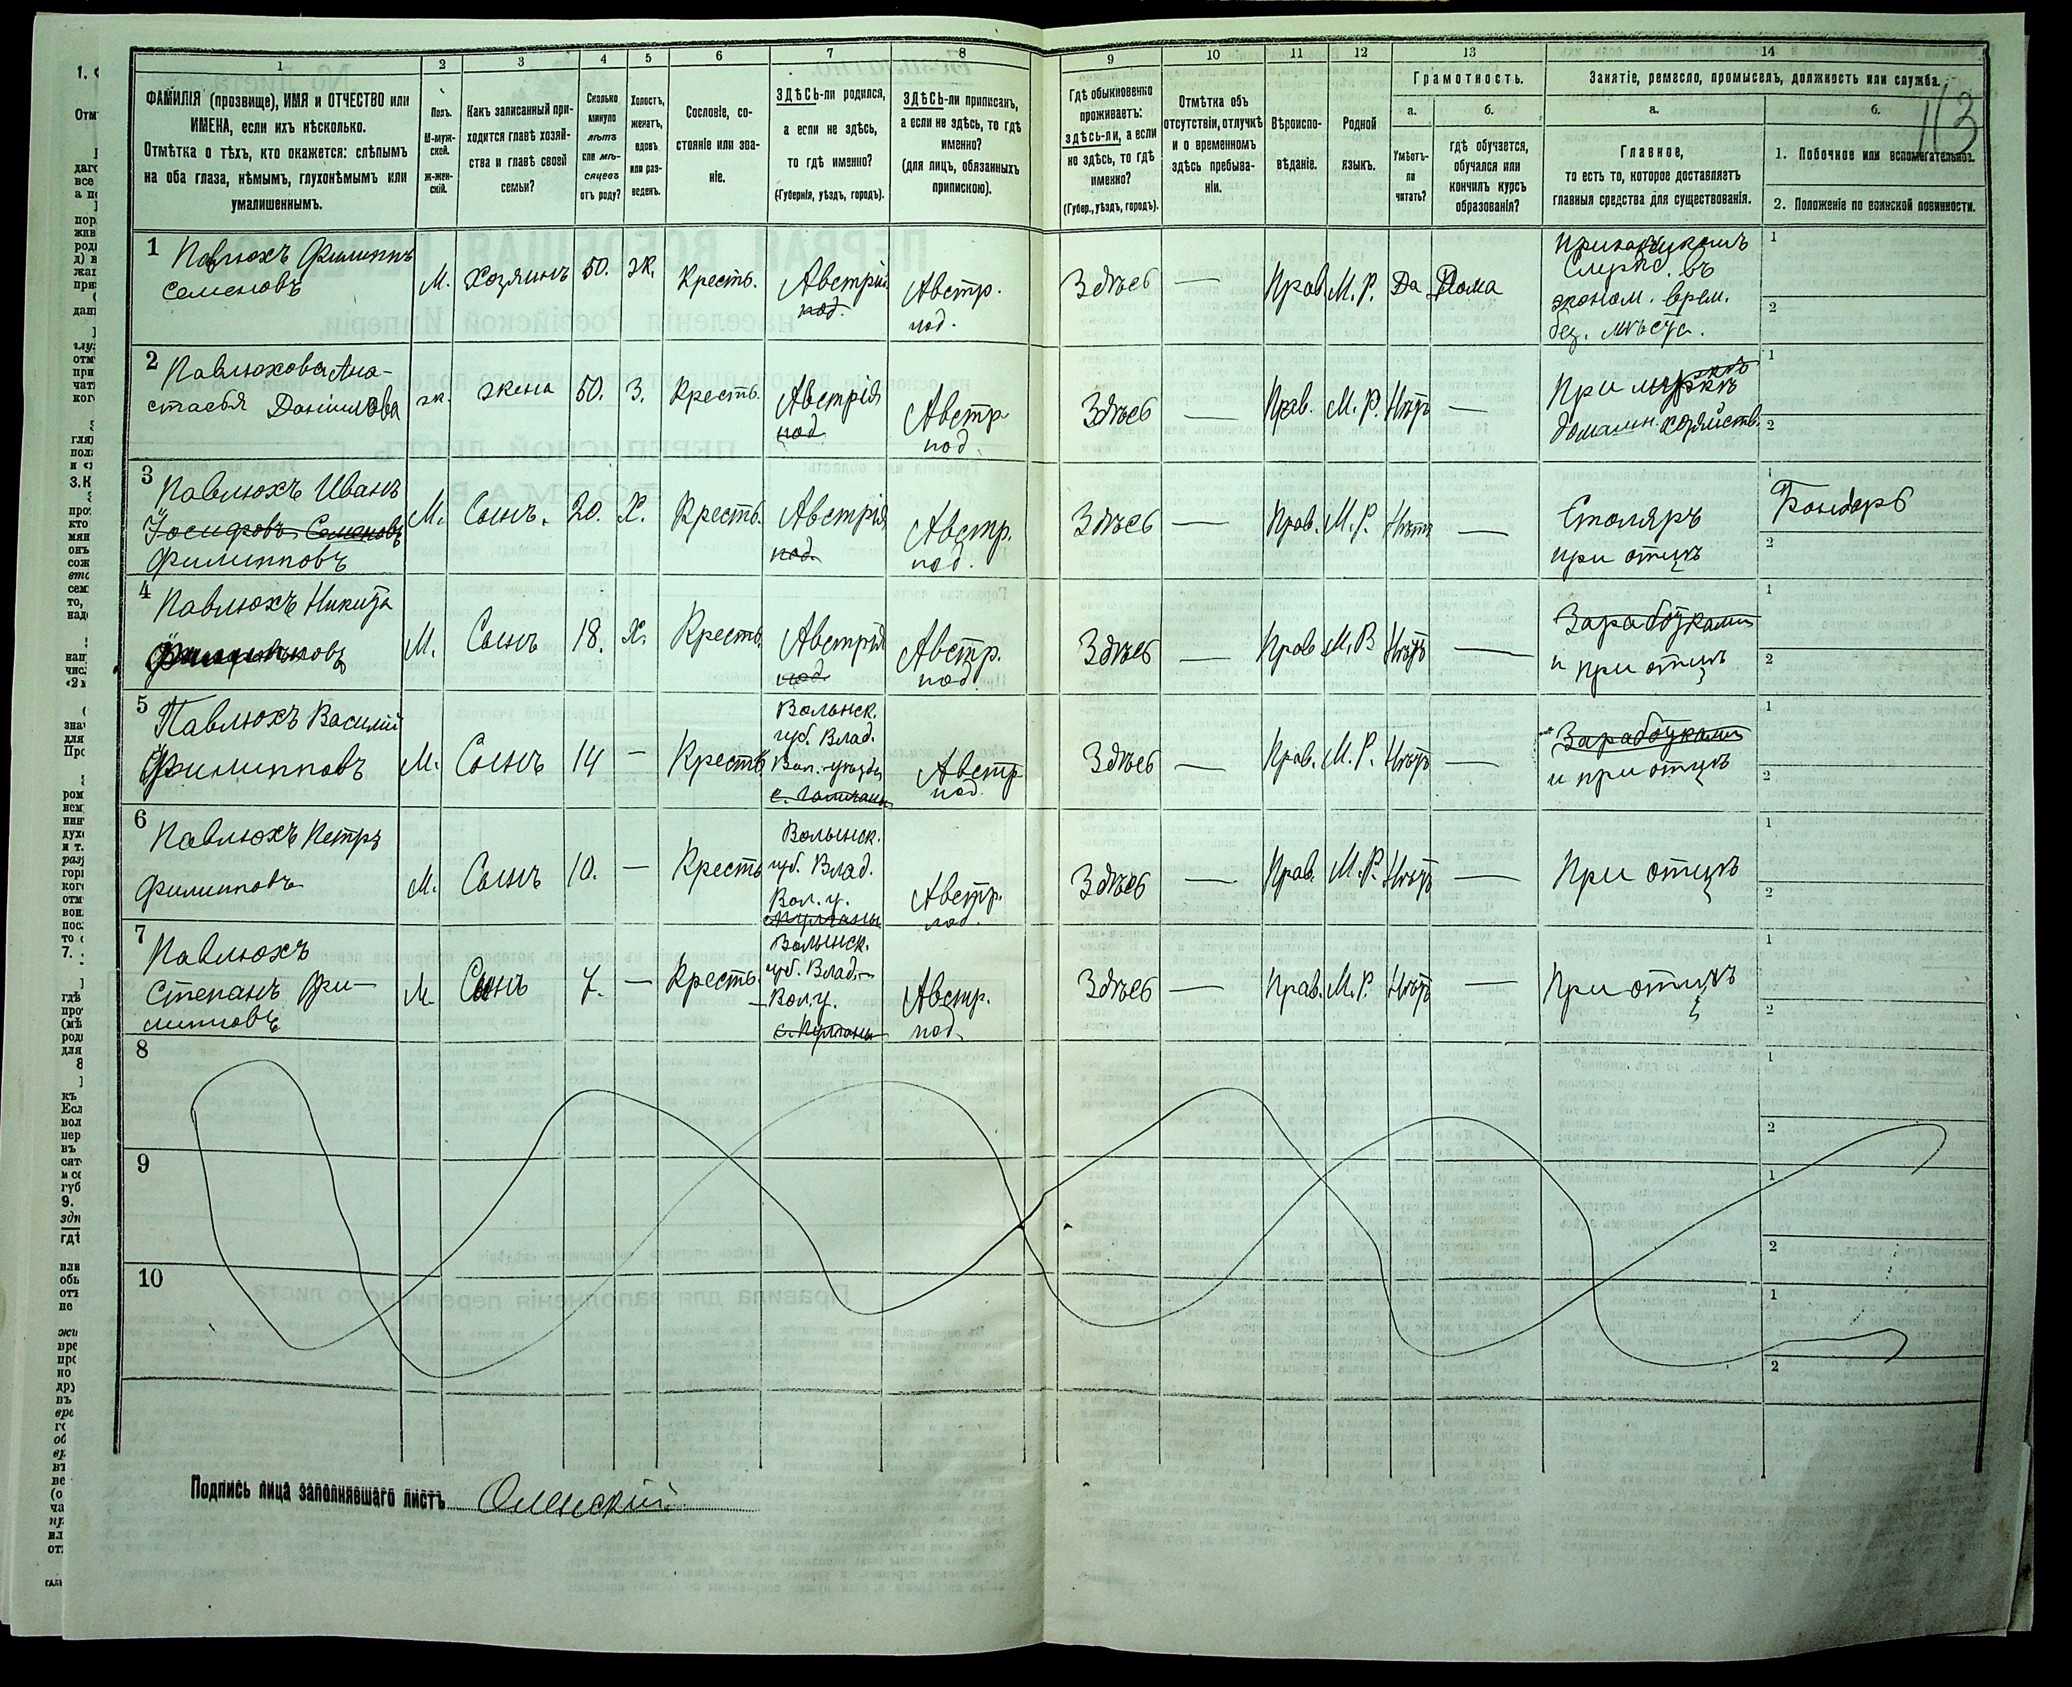 113
1
2
3
4
5
6
7
8
9
10
11
12
13
14
ФАМИЛІЯ (прозвище), ИМЯ и ОТЧЕСТВО или
ИМЕНА, если ихъ нѣсколько.
Отмѣтка о тѣхъ, кто окажется: слѣпымъ
на оба глаза, нѣмымъ, глухонѣмымъ или
умалишеннымъ.
Полъ.
М-муж-
ской.
Ж-жен-
скій.
Какъ записанный при-
ходится главѣ хозяй-
ства и главѣ своей
семьи?
Сколько
минуло
лѣтъ
или мѣ-
сяцевъ
отъ роду?
Холостъ,
женатъ,
вдовъ
или раз-
веденъ.
Сословіе, со-
стояніе или зва-
ніе.
ЗДѢСЬ-ли родился,
а если не здѣсь,
то гдѣ именно?
(Губернія, уѣздъ, городъ).
ЗДѢСЬ-ли приписанъ,
а если не здѣсь, то гдѣ
именно?
(для лицъ, обязанныхъ
припискою).
Гдѣ обыкновенно
проживаетъ:
здѣсь-ли, а если
не здѣсь, то гдѣ
именно?
(Губер., уѣздъ, городъ).
Отмѣтка объ
отсутствіи, отлучкѣ
и о временномъ
здѣсь пребыва-
ніи.
Вѣроиспо-
вѣданіе.
Родной
языкъ.
Грамотность.
а.
б.
Умѣетъ-
ли
читать?
гдѣ обучается,
обучался или
кончилъ курсъ
образованія?
Занятіе, ремесло, промыселъ, должность или служба.
а.
б.
Главное,
то есть то, которое доставляетъ
главныя средства для существованія.
1. Побочное или вспомогательное.
2. Положеніе по воинской повинности.
1
Павлюхъ Филиппъ
Семеновъ
М.
Хозяинъ
50.
Ж.
Крестъ.
Австрія
под.
Австр.
под.
Здѣсь
—
Прав.
М. Р.
Да
Дома
эконом. врем.
без. мѣста.
1
2
2
Павлюхова Ана-
стасья Даніилова
ж.
жена
50.
З.
Крестъ.
Австрія
под
Австр.
под.
Здѣсь
—
Прав.
М. Р.
Нѣтъ
—
При мужѣ
домашн. хозяйств.
1
2
3
Павлюхъ Иванъ
Іосифовъ Семеновъ
Филипповъ
М.
Сынъ.
20.
Х.
Крестъ.
Австрія
под.
Австр.
под.
Здѣсь
—
Прав.
М. Р.
Нѣтъ
—
Столяръ
при отцѣ
1
Бондарь
2
4
Павлюхъ Никита
М.
Сынъ
18.
Х.
Крестъ.
Австрія
под.
Австр.
под.
Здѣсь
—
Прав.
М. Р.
Нѣтъ
—
Заработками
и при отцѣ
1
2
5
Павлюхъ Василій
Филипповъ
М.
Сынъ
14
—
Крестъ
Волынск.
губ. Влад.
Вол. уѣзда
Австр.
под.
Здѣсь
—
Прав.
М. Р.
Нѣтъ
—
Заработками
и при отцѣ
1
2
6
Павлюхъ Петръ
Филипповъ
М.
Сынъ
10.
—
Крестъ
Волынск.
губ. Влад.
Вол. у.
Австр.
под.
Здѣсь
—
Прав.
М. Р.
Нѣтъ
—
При отцѣ
1
2
7
Павлюхъ
Степанъ Фи-
липповъ
М
Сынъ
7.
—
Крестъ.
Волынск.
губ. Влад.
Вол. у.
Австр.
под.
Здѣсь
—
Прав.
М. Р.
Нѣтъ
—
При отцѣ
1
2
8
1
2
9
1
2
10
1
2
Подпись лица заполнявшаго листъ